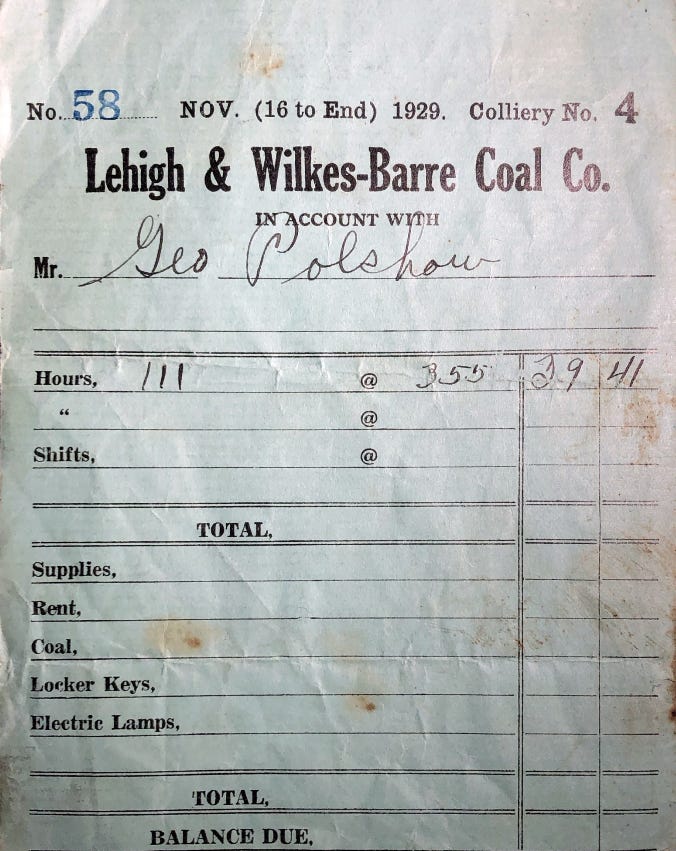 No. 58 NOV. (16 to End) 1929. Colliery No. 4
Lehigh & Wilkes-Barre Coal Co.
IN ACCOUNT WITH
Mr. Geo Polshow
Hours, 111 @ 355 39 41
“ @
Shifts, @
TOTAL,
Supplies,
Rent,
Coal,
Locker Keys,
Electric Lamps,
TOTAL,
BALANCE DUE,